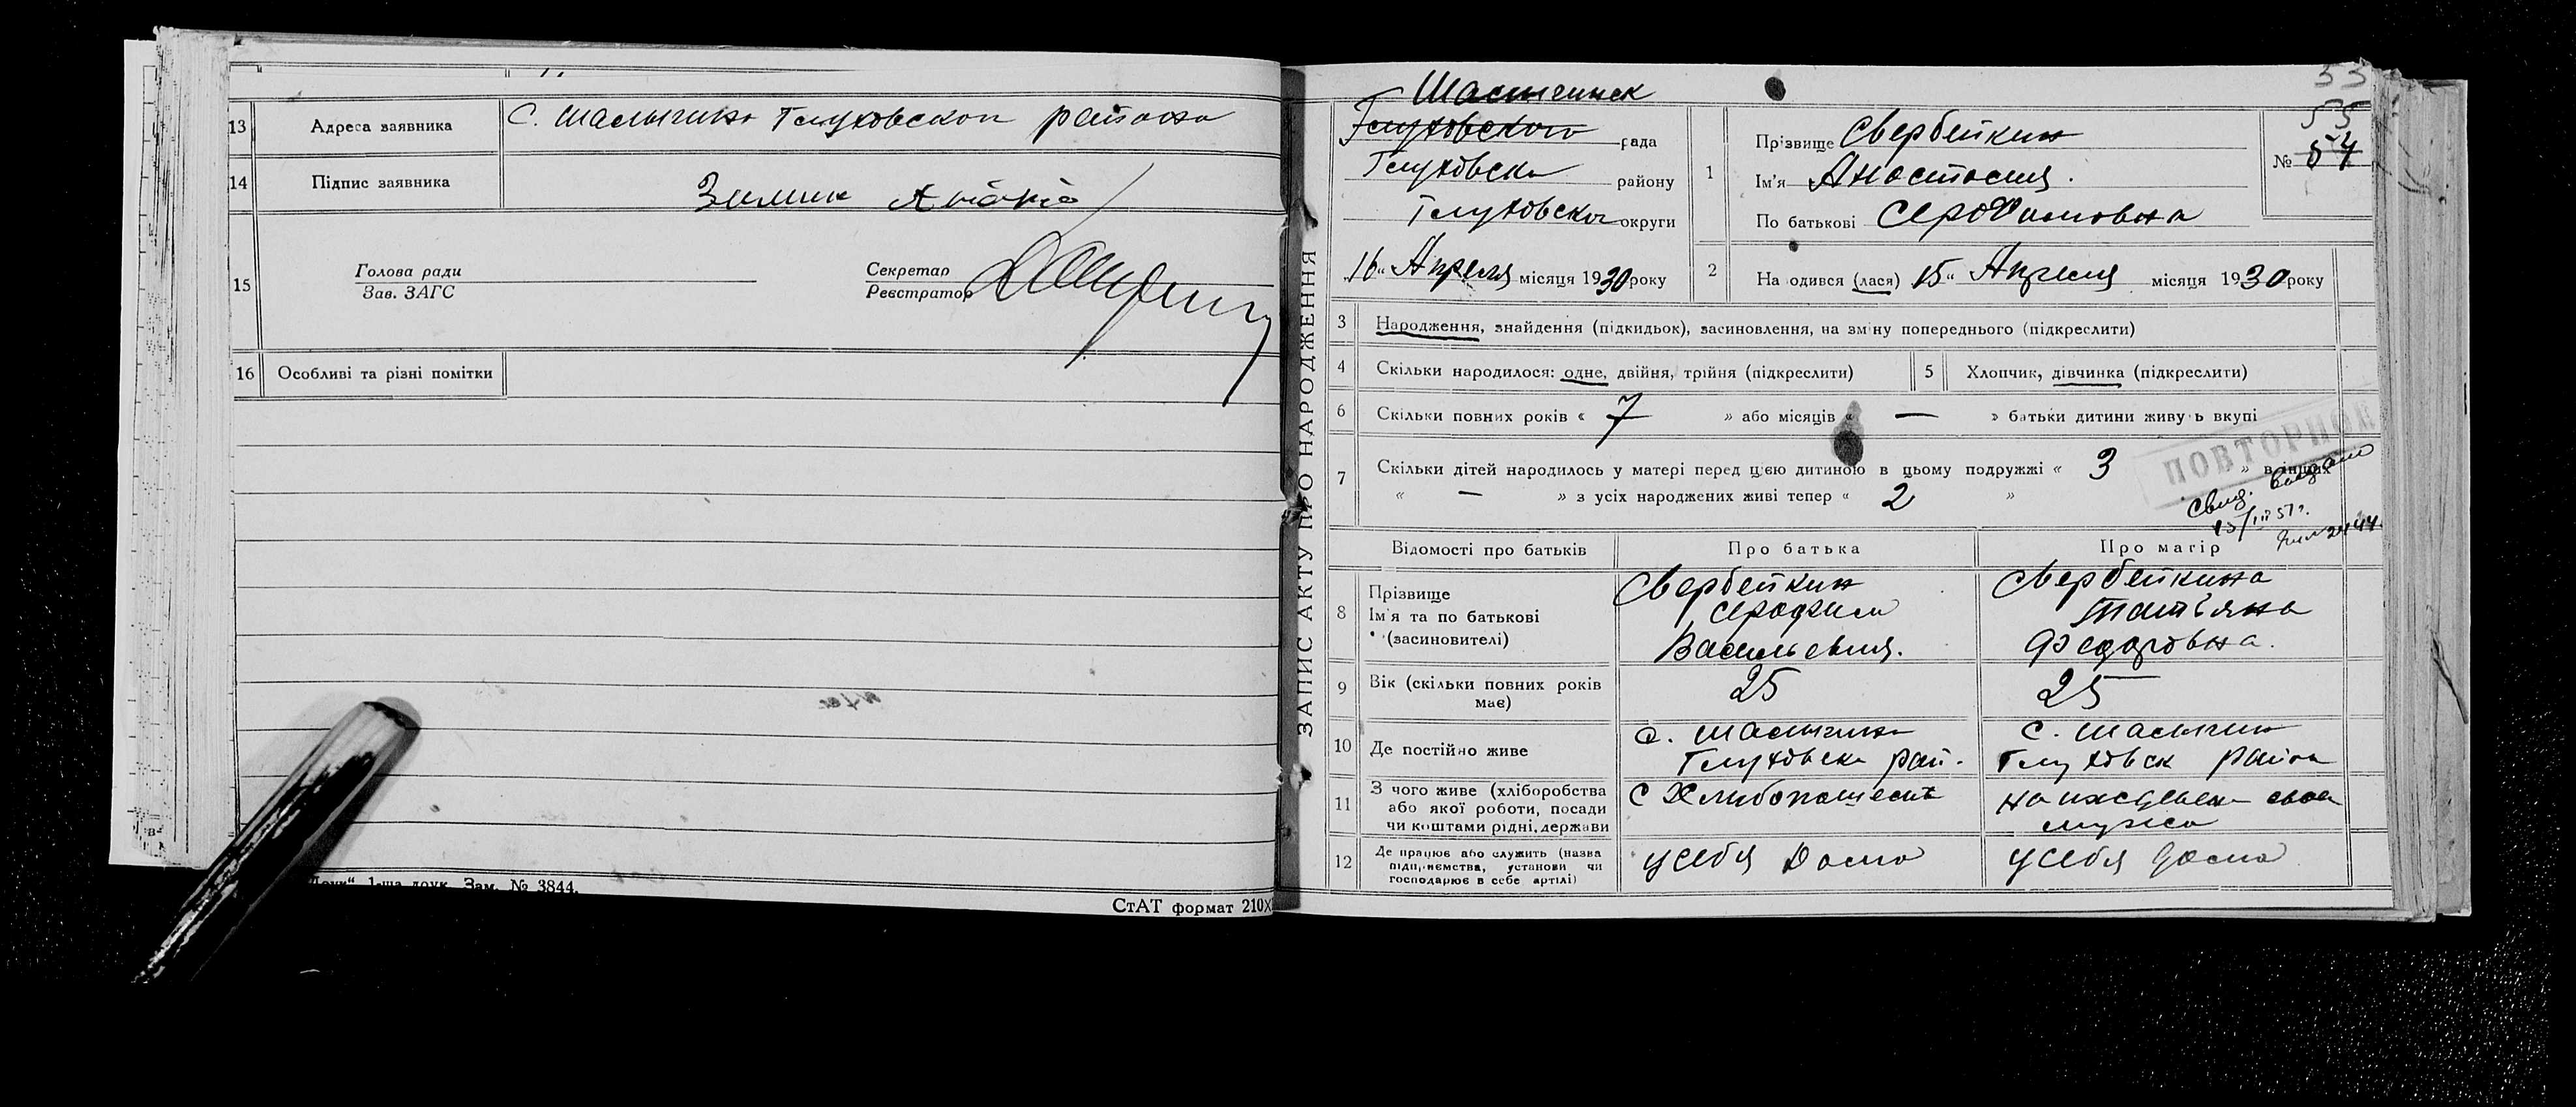 13 Адреса заявника С. Шалыгино Глуховскон района
14 Підпис заявника Зимин
15 Голова ради
Зав. ЗАГС
Секретар
Реєстратор
16 Особливі та різні помітки
1-ша друк. Зам. № 3844.
СтАТ формат 210X
ЗАПИС АКТУ ПРО НАРОДЖЕННЯ
53
55
№ 54
Глуховского рада
Глуховск району
Глуховско округи
16 „ Апреля місяця 1930 року
1 Прізвище Свербейкин
Ім'я Анастасия.
По батькові Серафимовна
2 На одився (лася) 15 „ Апреля місяця 1930 року
3 Народження, знайдення (підкидьок), засиновлення, на зміну попереднього (підкреслити)
4 Скільки народилося: одне, двійня, трійня (підкреслити)
5 Хлопчик, дівчинка (підкреслити)
6 Скільки повних років « 7 » або місяців « — » батьки дитини живу ь вкупі
7 Скільки дітей народилось у матері перед цією дитиною в цьому подружжі « 3 » в інших
« — » з усіх народжених живі тепер « 2 »
ПОВТОРНОЕ
Свид. выдано
Відомості про батьків Про батька Про матір
8 Прізвище
Ім'я та по батькові
(засиновителі)
Свербейкин
Серафим
Васильевич.
Свербейкина
Татьяна
Федоровна.
9 Вік (скільки повних років має) 25 25
10 Де постійно живе
с. Шалыгино
Глуховск рай.
с. Шалыгин
Глуховск района
11 З чого живе (хліборобства
або якої роботи, посади
чи коштами рідні, держави
С Хлибопашест
на иждивен свое
мужа
12 Де працює або служить (назва
підприємства, установи чи
господарює в себе артілі)
у себя дома
у себя дома